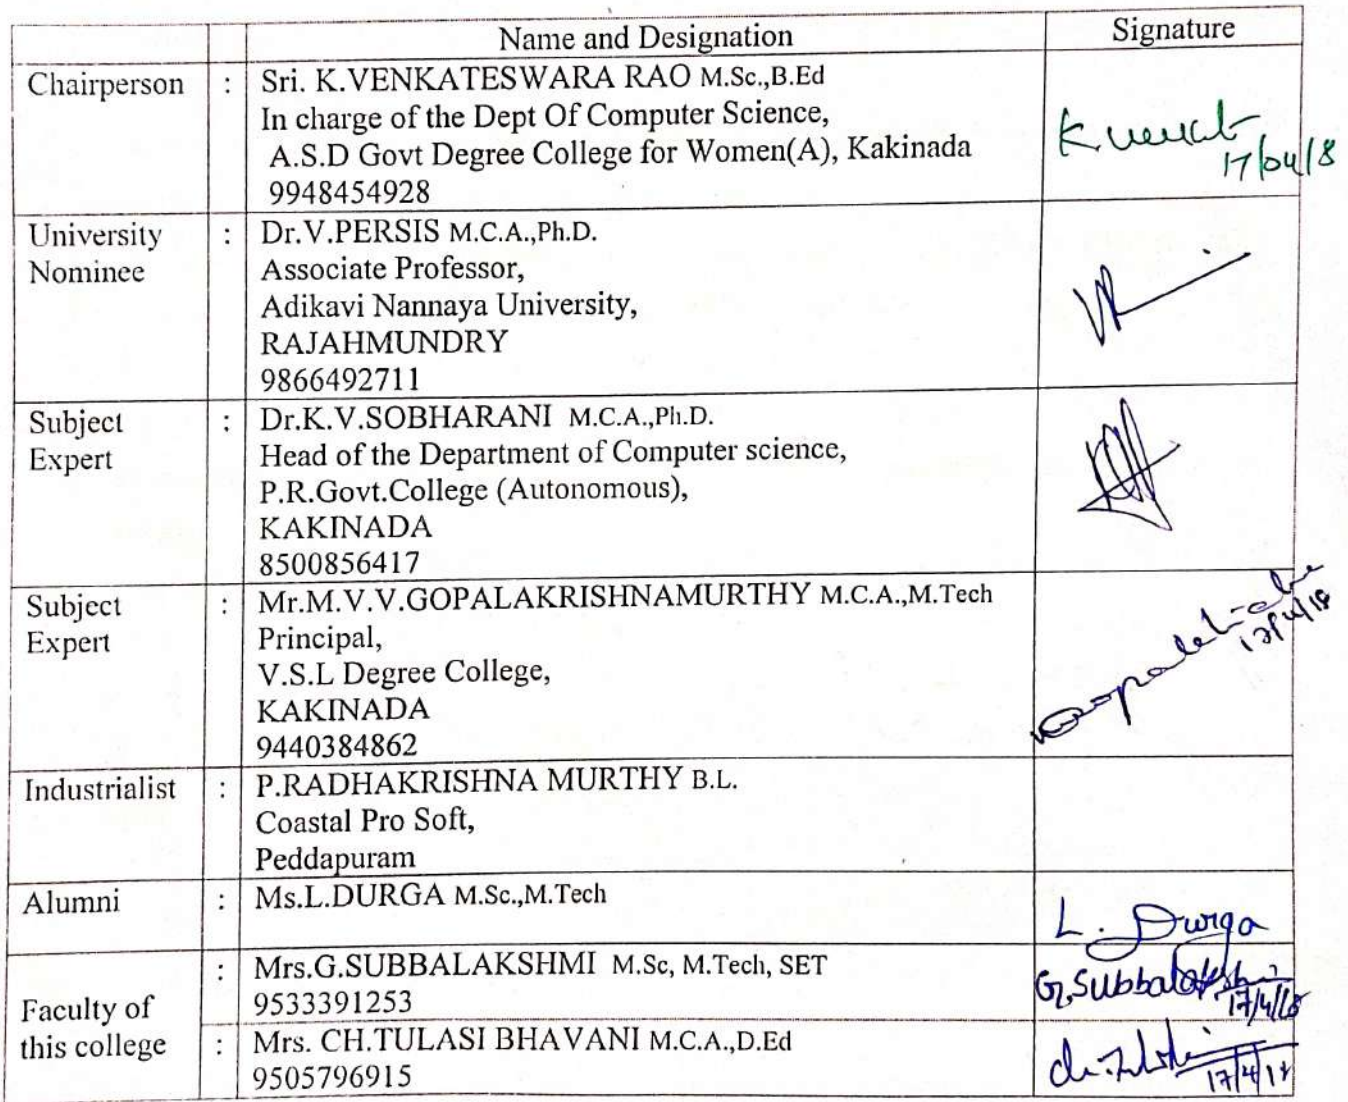 Name and Designation Signature
Chairperson : Sri. K.VENKATESWARA RAO M.Sc.,B.Ed
In charge of the Dept Of Computer Science,
A.S.D Govt Degree College for Women(A), Kakinada
9948454928
K. Venkat
17/04/18
University Nominee : Dr.V.PERSIS M.C.A.,Ph.D.
Associate Professor,
Adikavi Nannaya University,
RAJAHMUNDRY
9866492711
Subject Expert : Dr.K.V.SOBHARANI M.C.A.,Ph.D.
Head of the Department of Computer science,
P.R.Govt.College (Autonomous),
KAKINADA
8500856417
Subject Expert : Mr.M.V.V.GOPALAKRISHNAMURTHY M.C.A.,M.Tech
Principal,
V.S.L Degree College,
KAKINADA
9440384862
Industrialist : P.RADHAKRISHNA MURTHY B.L.
Coastal Pro Soft,
Peddapuram
Alumni : Ms.L.DURGA M.Sc.,M.Tech
L. Durga
Faculty of this college : Mrs.G.SUBBALAKSHMI M.Sc, M.Tech, SET
9533391253
G.Subbalakshmi
17/4/18
: Mrs. CH.TULASI BHAVANI M.C.A.,D.Ed
9505796915
17/4/18